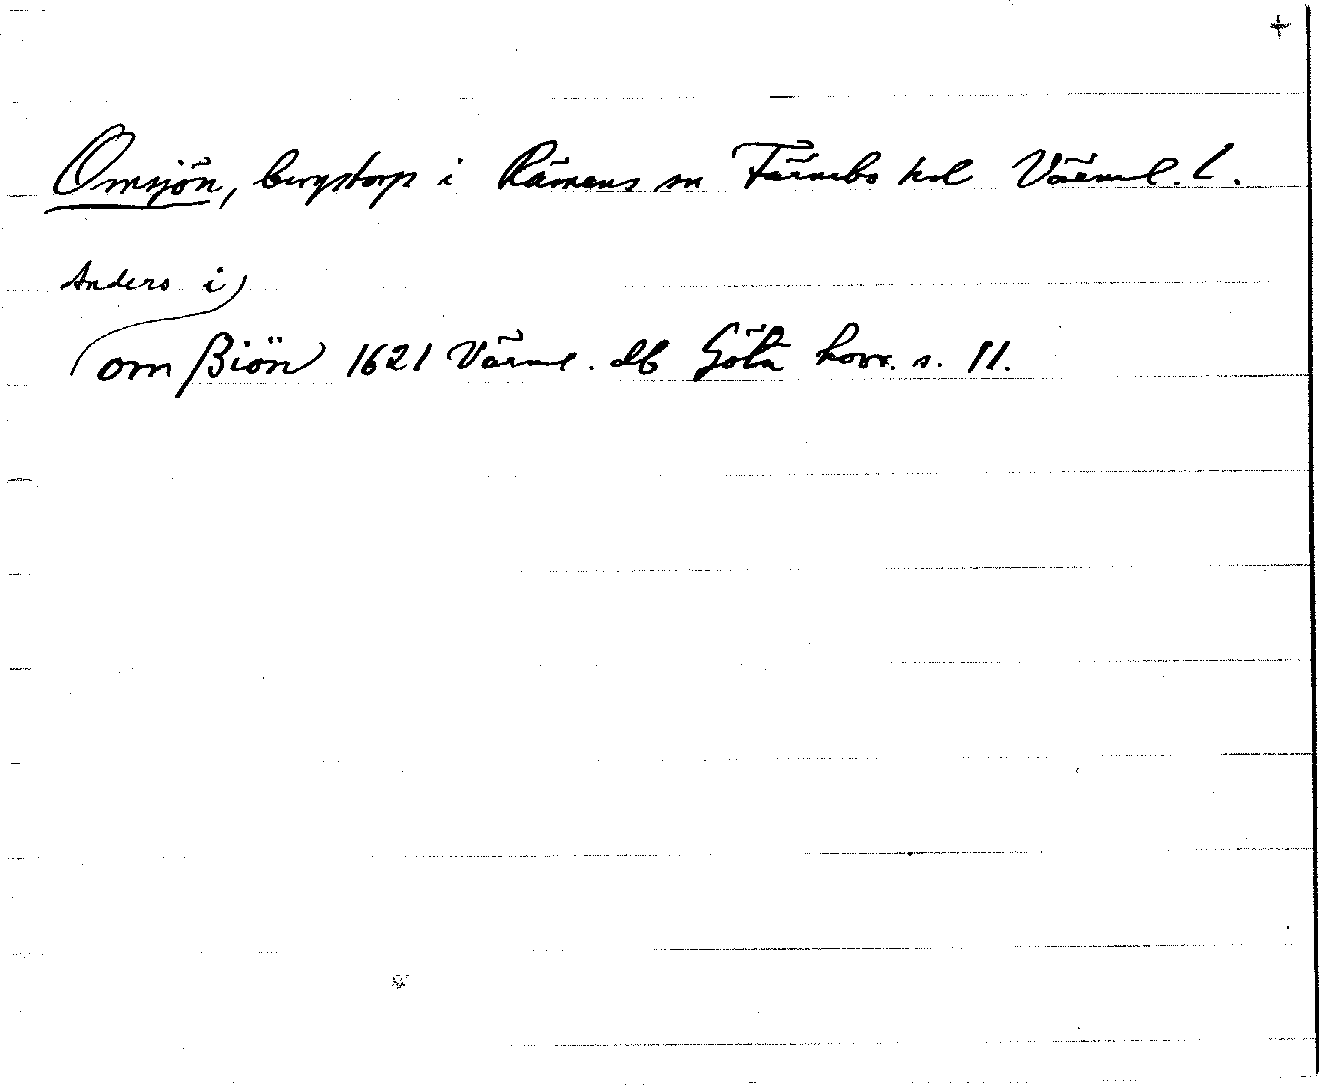 +
Omsjön, bergstorp i Rämens sn Färnebo hd Värml. l.
Anders i
om ßiön 1621 Värml. db Göta hovr. s. 11.